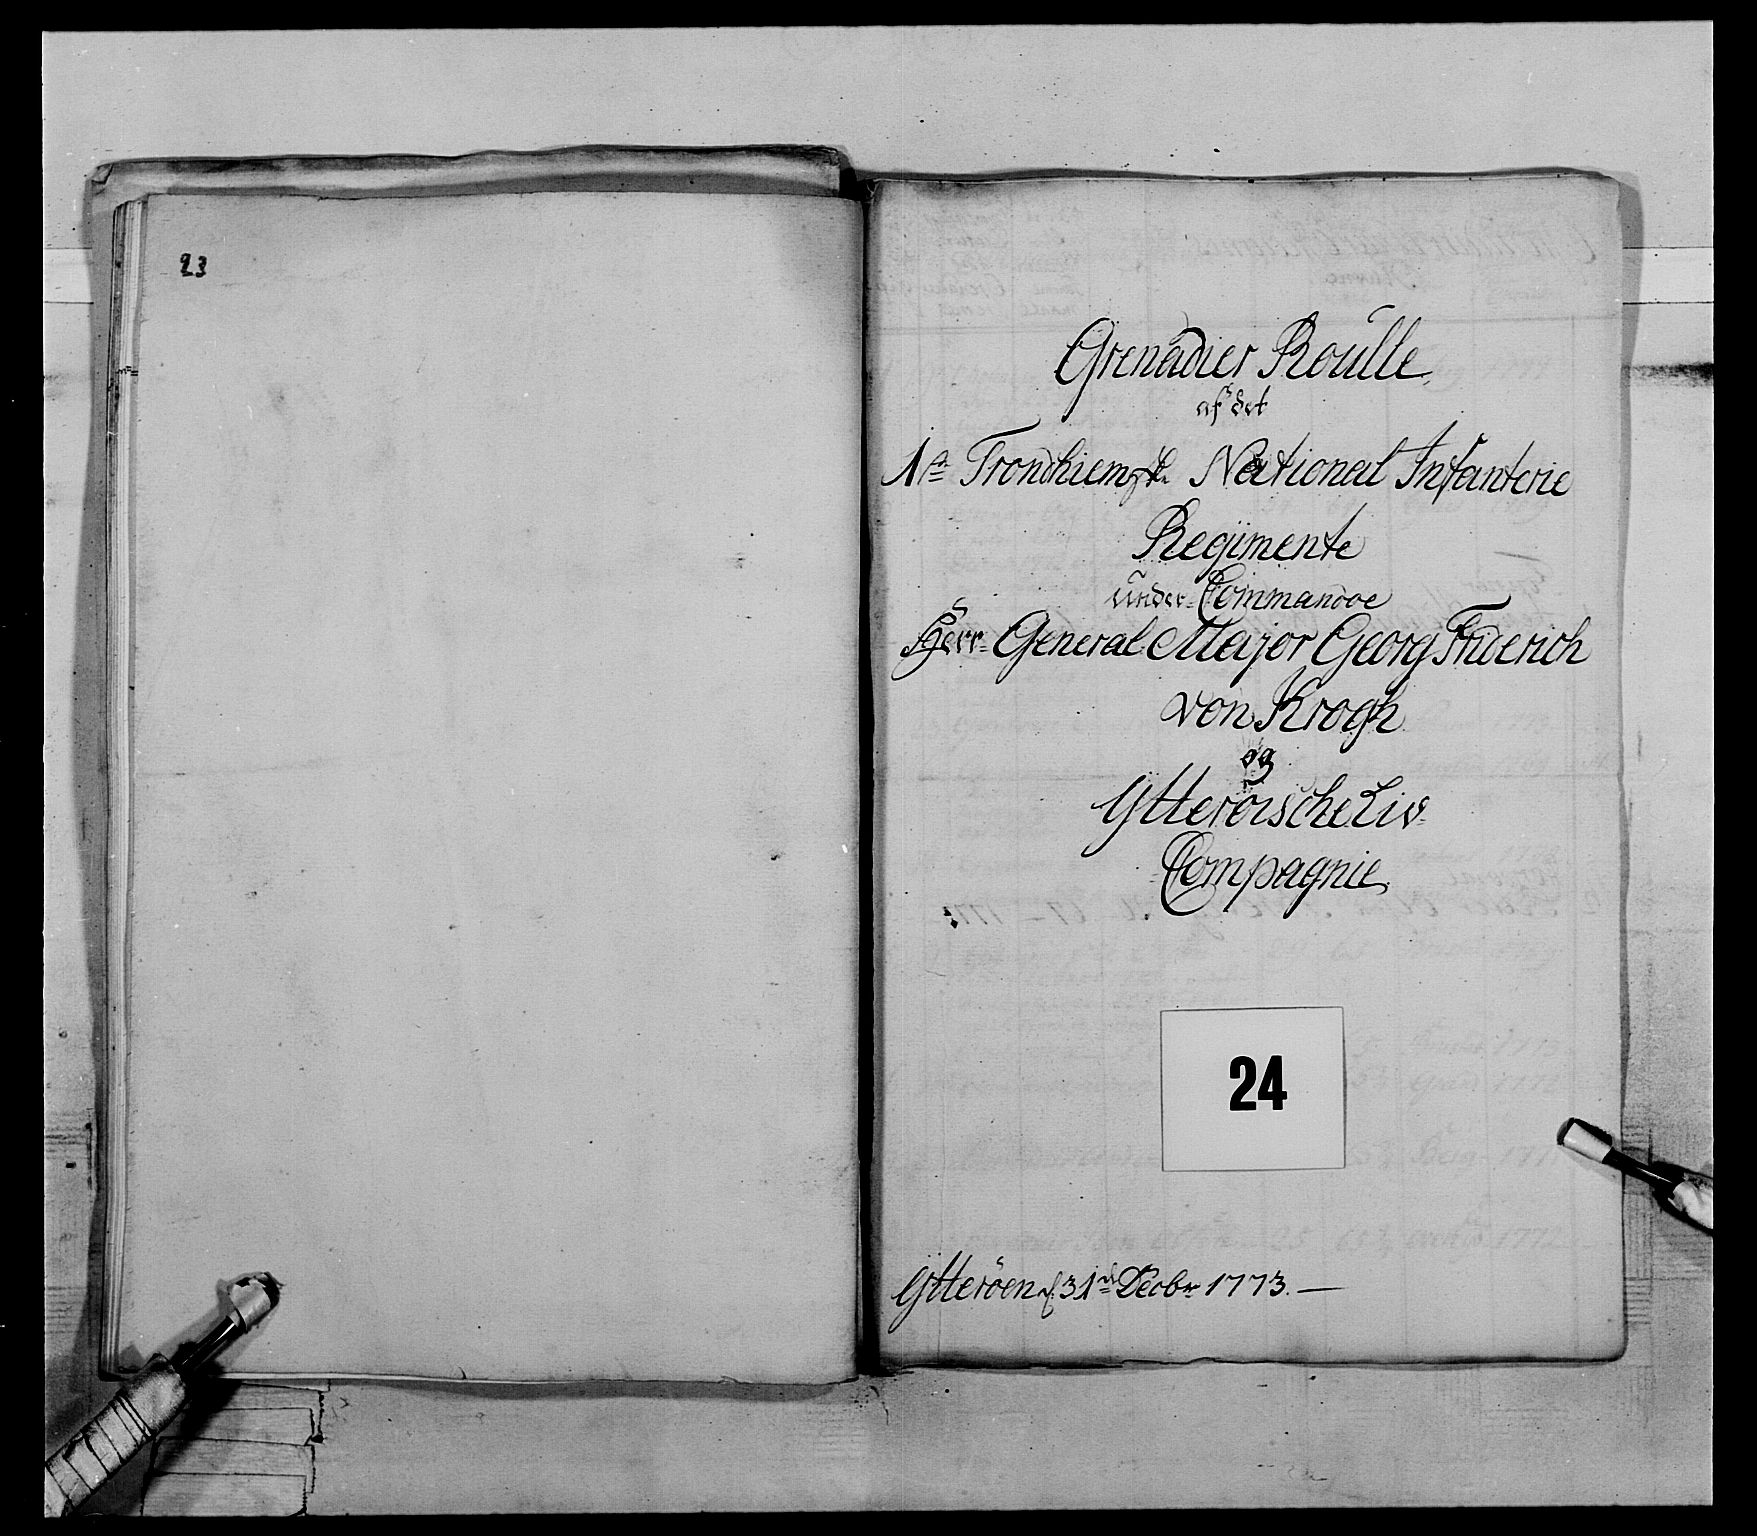 23
Grenadier Roülle
af det
1ste Trondhiemske National Infanterie
Regimente
ünder Commandoe
Herr General Major Georg Friderich
von Krogh
og
Ytteröische Liv
Compagnie
24
Ytteröen d. 31te Decbr 1773.